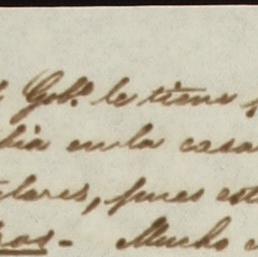 Gob.º le tiene
dia en la casa
lares, pues est
os. - Mucho